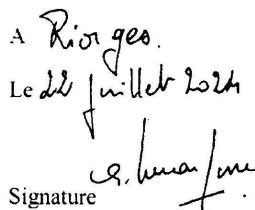 A Riorges.
Le 22 Juillet 2024
Signature